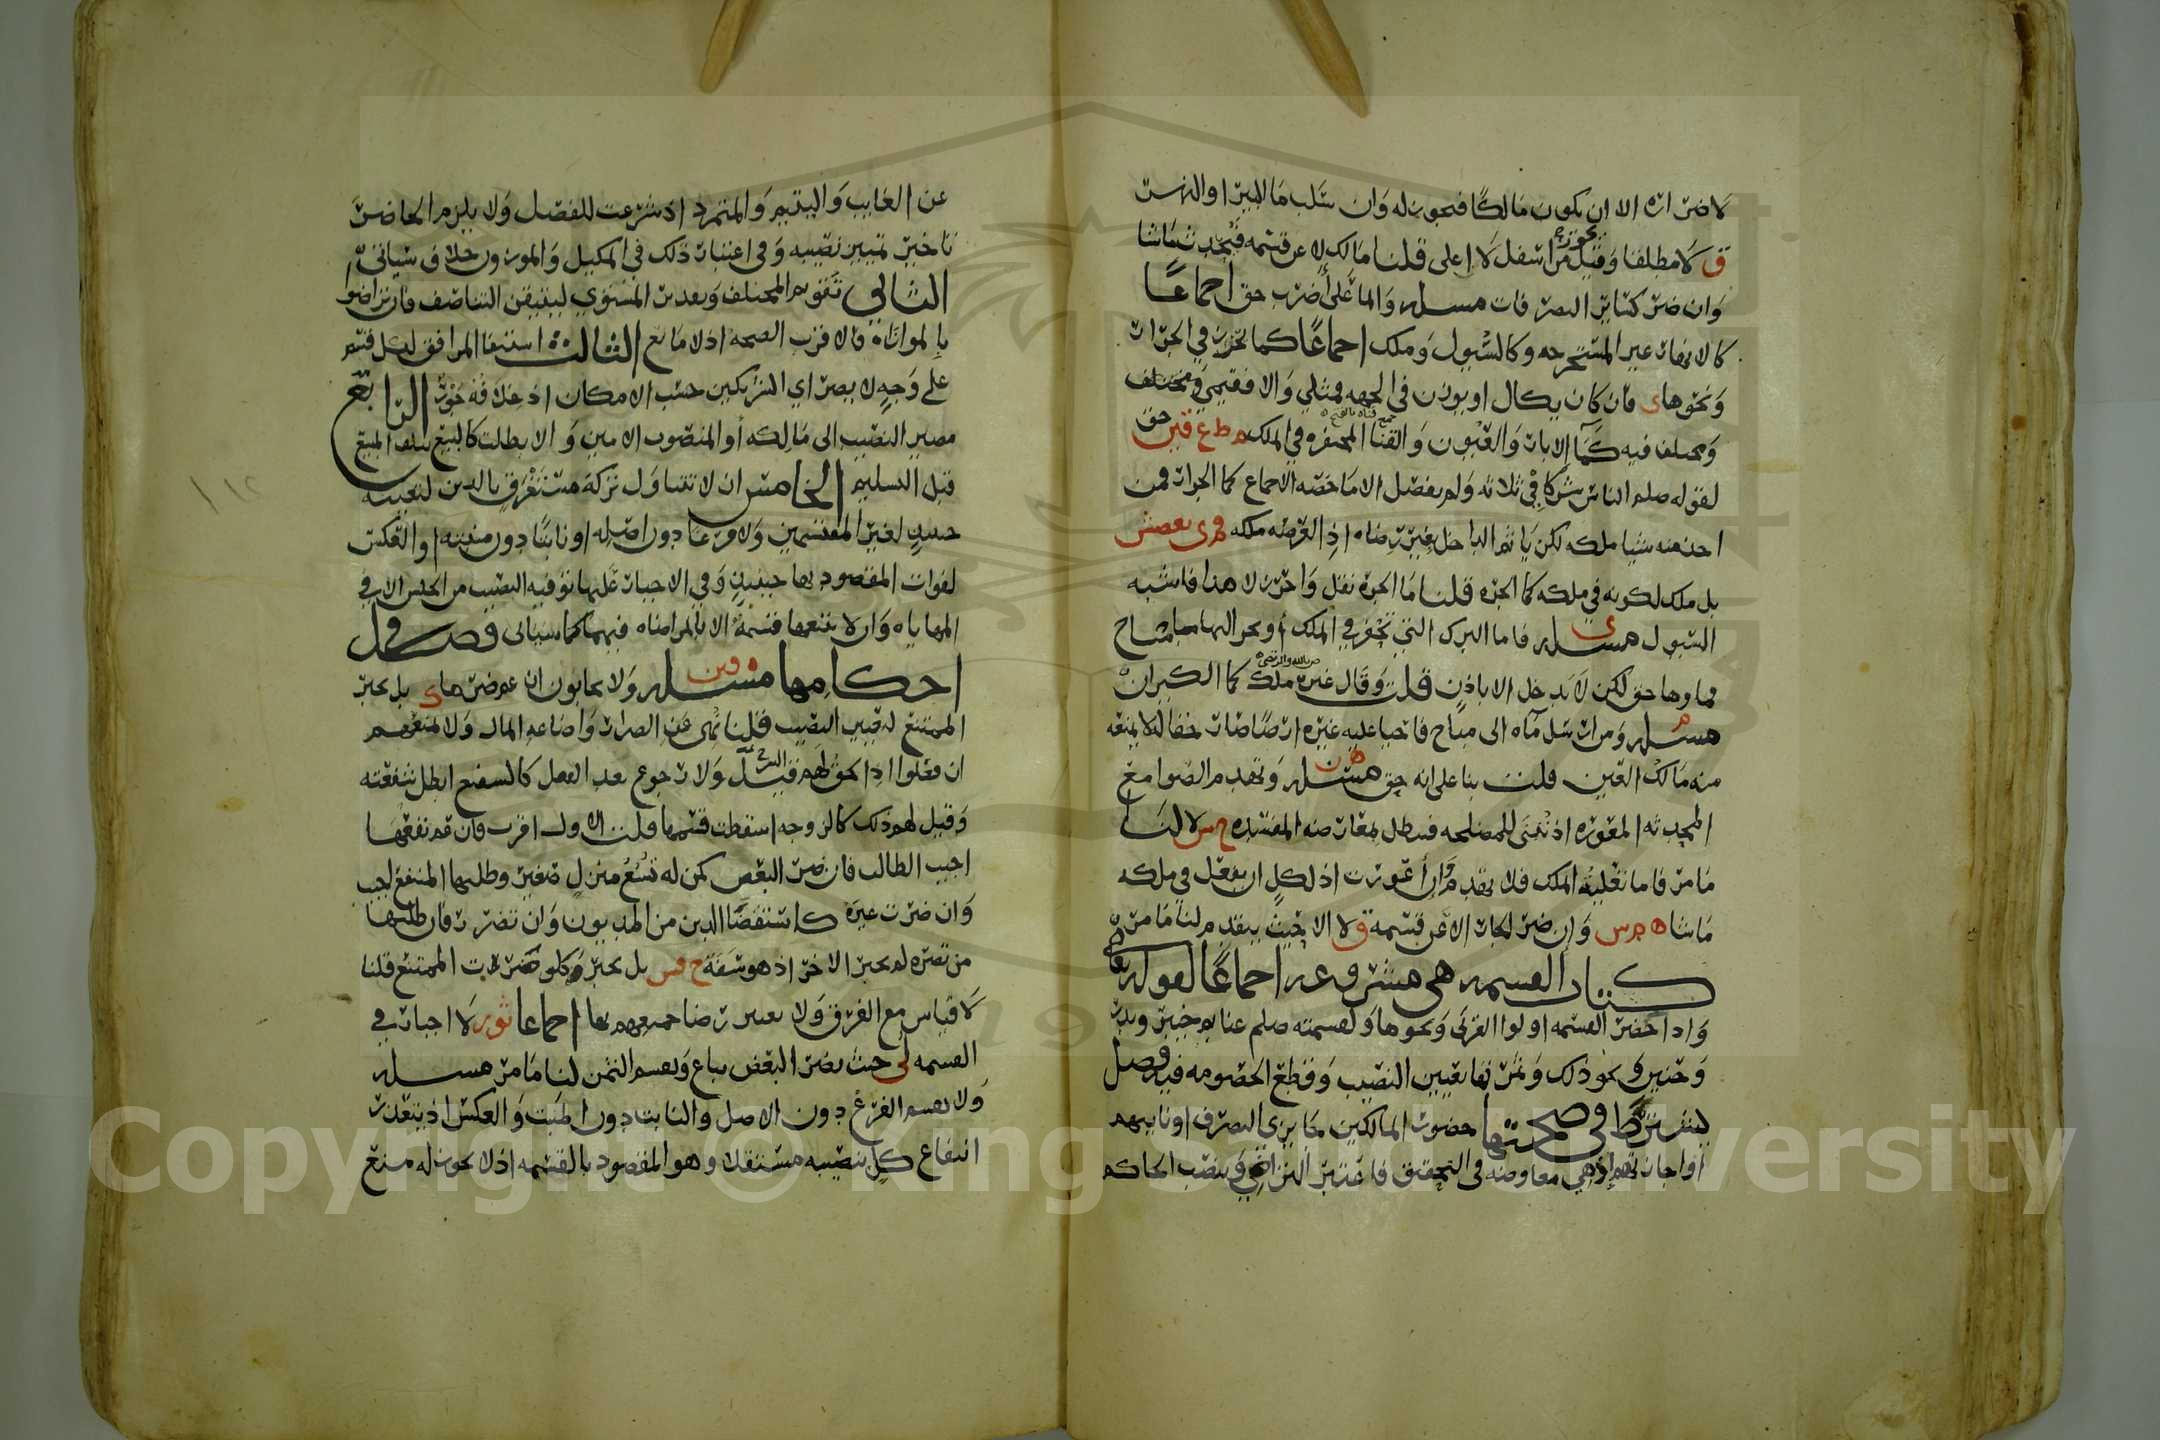 لا ضرار الا ان يكون مالكا فيجوز له وان سلب ما البير او النهر
ق لا مطلقا وقيل يجوز من اسفل لا اعلى قلنا مالك لا عن قسمه فيحدث ما شا
وان ضر كسائر التصرفات مسله والما على أضرب حق اجماعا
كالانهار غير المستخرجه وكالسيول وملك اجماعا كما تحرز في الجرات
ونحوها ى فان كان يكال او يوزن في الجهه فمثلي والا فقيمي ومختلف
ومختلف فيه كماء الابار والعيون والقنا المحتفره في الملك ه ط ع قين حق
لقوله صلم الناس شركا في ثلاثه ولم يفصل الا ما خصه الاجماع كما الجرات فمن
اخذ منه شيا ملكه لكن ياثم الداخل بغير رضاه اذ العرصه ملكه م ى بعصش
بل ملك لكونه في ملكه كما الجره قلنا ما الجره نقل واحرز لا هذا فاشبه
السيول مسله ى فاما البرك التي تحفر في الملك او نحر اليها ما مباح
فماوها حق لكن لا يدخل الا باذن قلت وقال غيره ملك كما الكيزان
مسله م ومن ارسل ماه الى مباح فاحيا عليه غيره ارضا صارت حقا له لا يمنعه
منه مالك العين قلت بنا على انه حق مسله ه ن وتهدم الصوامع
المحدثه المعوره اذ تبنى للمصلحه فتبطل بمعارضه المفسده ح س لا لنا
ما مر فاما تعلية الملك فلا يهدم وان أعورت اذ لكل ان يفعل في ملكه
ما شا ه م س وان ضر الجار الا عن قسمة ق لا الا بحيث ينهدم لنا ما مر
كتاب القسمه هي مشروعه اجماعا لقوله تعالى
واذا حضر القسمه اولوا القربى ونحوها ولقسمته صلم غنايم خيبر وبدر
وحنين ونحو ذلك وثمرتها تعيين النصيب وقطع الخصومه فيه فصل
يشترط في صحتها حضور المالكين جايزى التصرف او نايبهم
او اجازتهم اذ هي معاوضه في التحقيق فاعتبر التراضي وينصب الحاكم
عن الغايب واليتيم والمتمرد اذ شرعت للفصل ولا يلزم الحاضر
تاخير تمييز نصيبه وفي اعتبار ذلك في المكيل والموزون خلاف سياتي
الثاني تقويم المختلف وتقدير المستوي ليتيقن التناصف فان تراضوا
بالمواناه فالاقرب الصحه اذ لا مانع الثالث استيفا المرافق لكل قسم
على وجه لا يضر اي الشريكين حسب الامكان اذ خلافه جور الرابع
مصير النصيب الى مالكه أو المنصوب الامين والا بطلت كالبيع بتلف المبيع
قبل التسليم الخامس ان لا تتناول تركة مستغرق بالدين لتعينه
حينئذ لغير المقتسمين ولا فرعا دون اصله او نابتا دون منبته او العكس
لفوات المقصود بها حينئذ وفي الاجبار عليها توفيه النصيب من الجنس الا في
المهاياه وان لا تتبعها قسمة الا بالمراضاه فيهما كما سياتي فصل في
احكامها مسله قين ولا يجابون ان عم ضرها ى بل يجبر
الممتنع لتعيين النصيب قلنا نهى عن الضرار واضاعه المال ولا منعهم
ان فعلوا اذ الحق لهم قيل ولا رجوع بعد الفعل كالشفيع ابطل شفعته
وقيل لهم ذلك كالزوجه اسقطت قسمها قلت الاول اقرب فان عم نفعها
اجيب الطالب فان ضر البعض كمن له تسع منزل صغير وطلبها المنتفع اجيب
وان ضرت غيره كاستقضا الدين من المديون وان تضرر فان طلبها
من تضره لم يجبر الاخر اذ هو سفه ح قس بل يجبر كلو ضرت الممتنع قلنا
لا قياس مع الفرق ولا يعتبر رضا جميعهم بها اجماعا ثور لا اجبار في
القسمه لى حيث يضر البعض يباع ويقسم الثمن لنا ما مر مسله
ولا يقسم الفرع دون الاصل والنابت دون المنبت والعكس اذ يتعذر
انتفاع كل بنصيبه مستقلا وهو المقصود بالقسمه اذ لا يجوز له منع